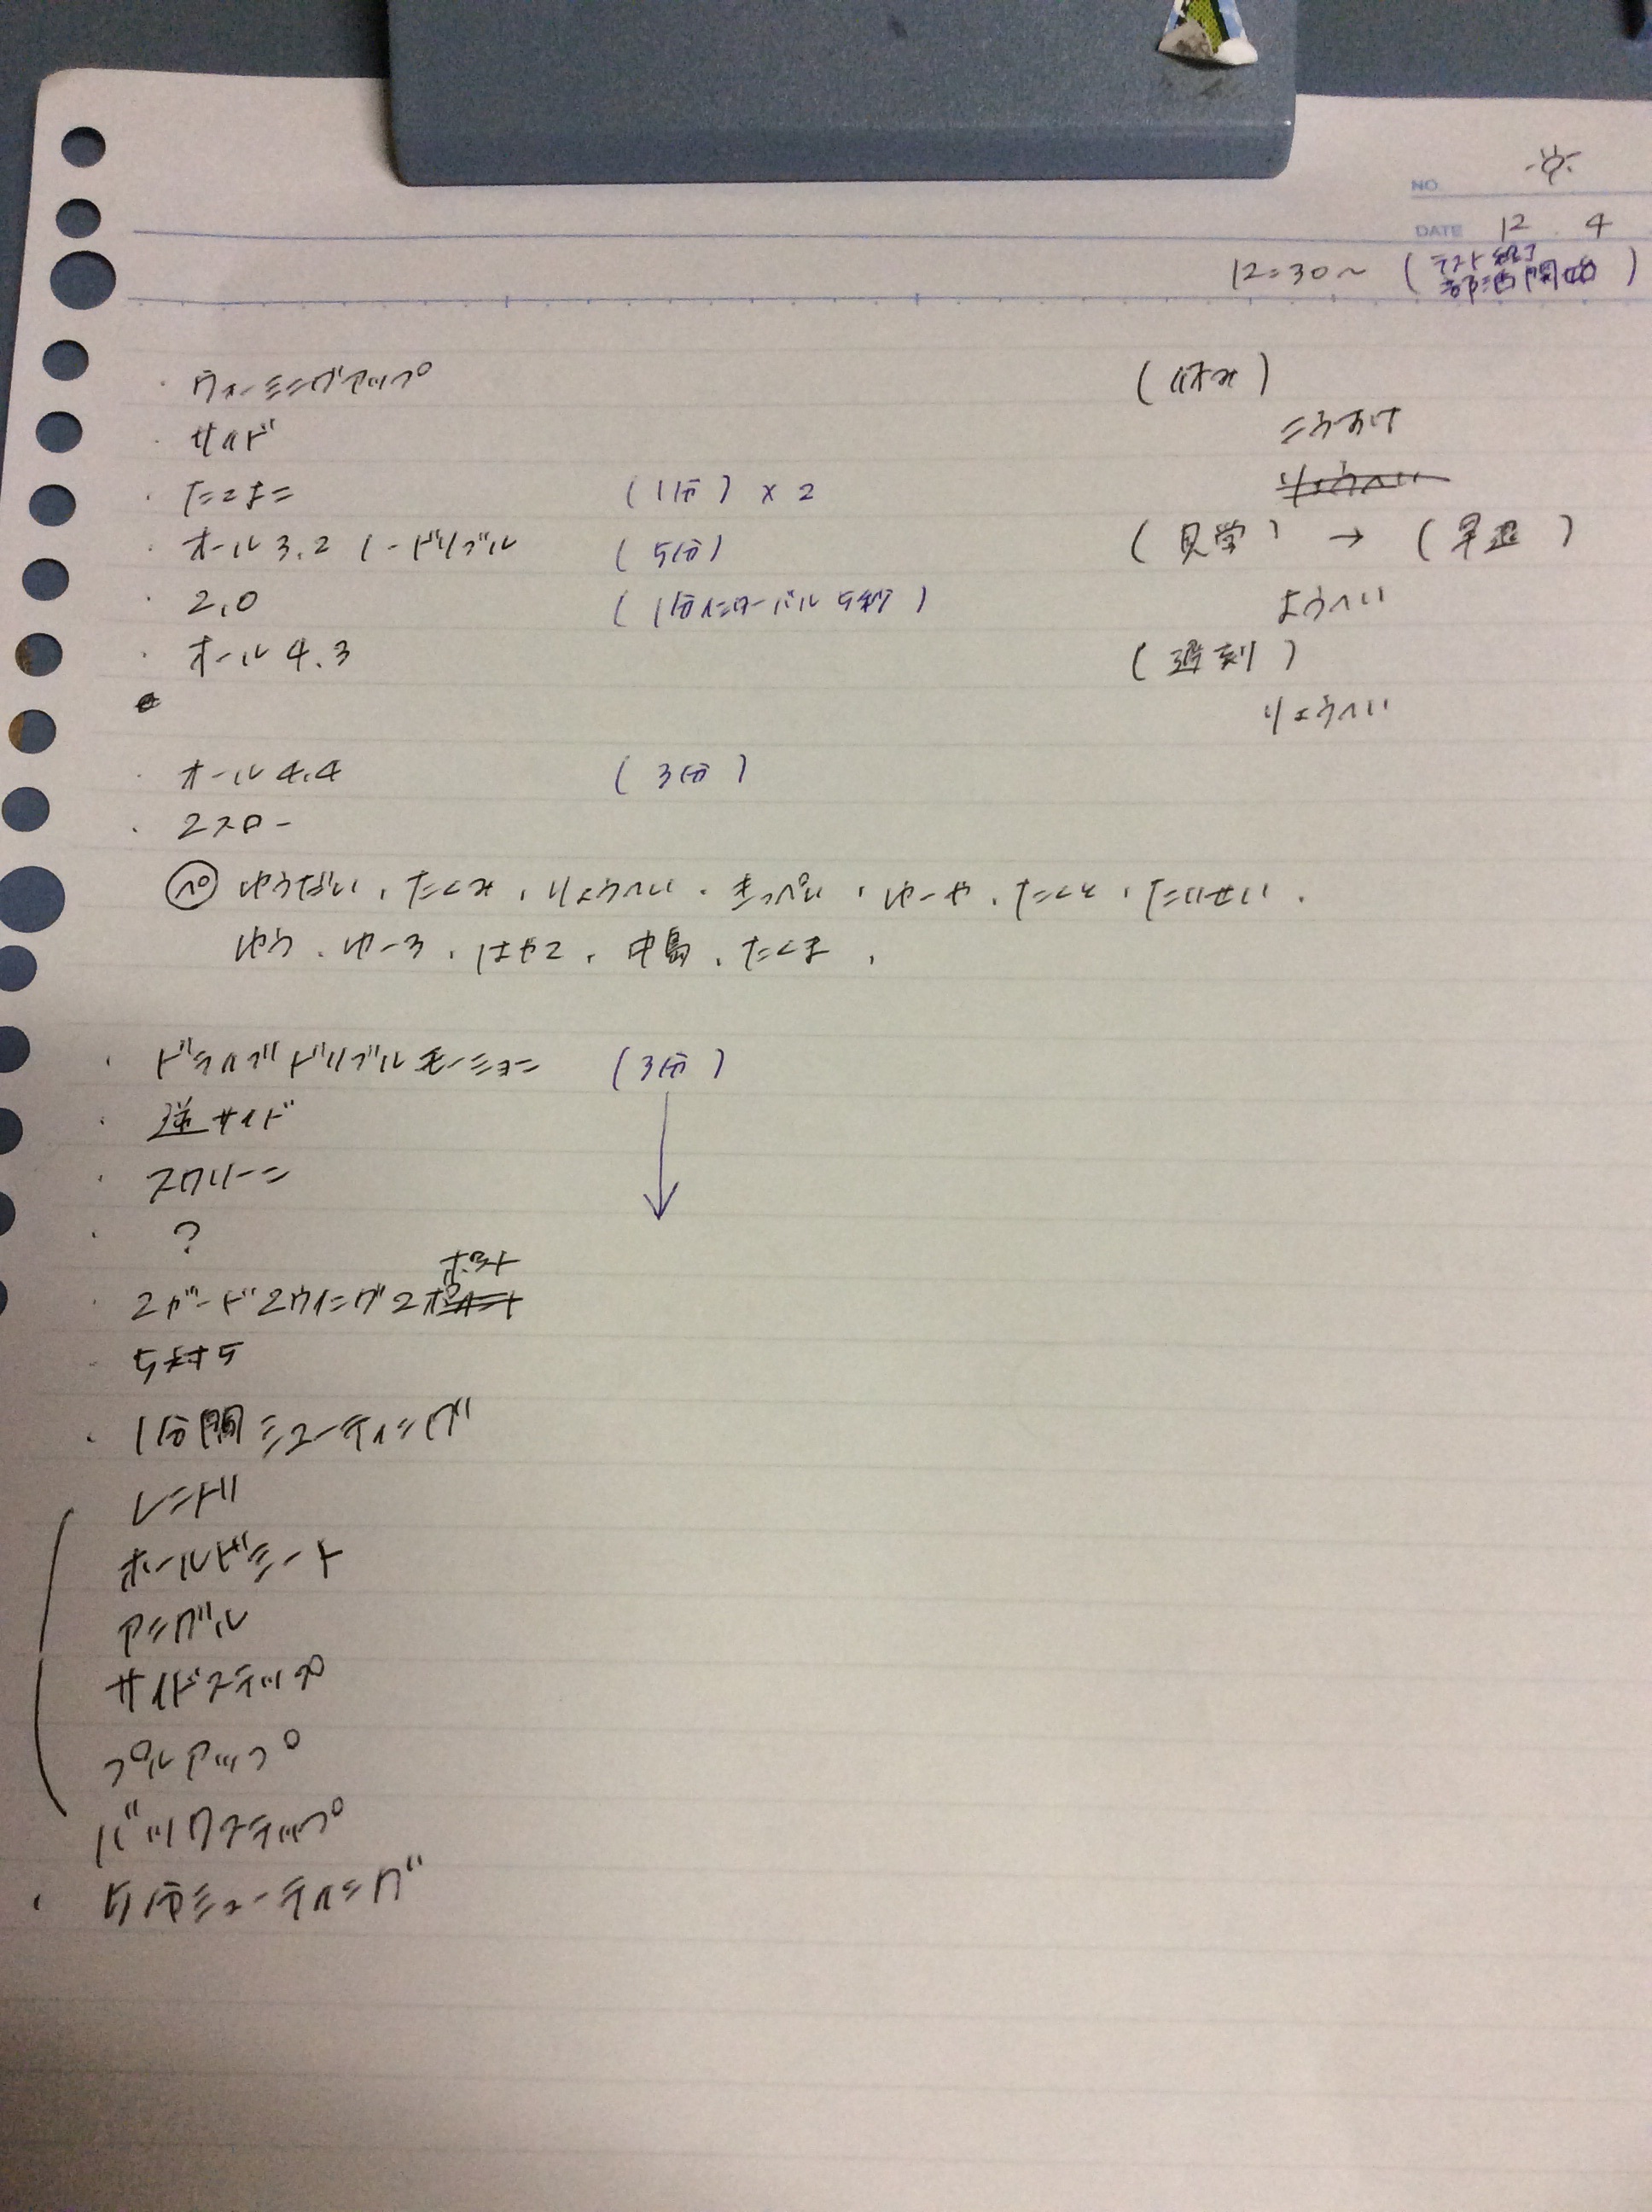 NO.
DATE 12 . 4
12:30〜 (テスト終了
部活開始)
・ウォーミングアップ (休み)
・サイド こうすけ
・たこよこ (1分) × 2 りょうへい
・オール3.2 1-ドリブル (5分) (見学) → (早退)
・2.0 (1分インターバル 5秒) ようへい
・オール4.3 (遅刻)
りょうへい
・オール4.4 (3分)
・2スロー
ペ ゆうだい、たくみ、りょうへい、きっぺい、ゆーや、たくと、たいせい、
ゆう、ゆーろ、はやと、中島、たくま、
・ドライブドリブルモーション (3分)
・逆サイド
・スクリーン
・?
ポスト
・2ガード2ウイング2
・5対5
・1分間シューティング
レンドリ
ホールドミート
アングル
サイドステップ
プルアップ
バックステップ
・5分シューティング